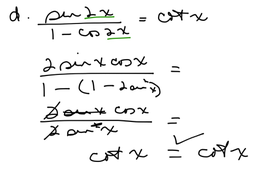 d. sin 2x / 1 - cos 2x = cot x
2 sin x cos x / 1 - (1 - 2 sin²x) =
2 sin x cos x / 2 sin²x =
cot x = cot x ✓